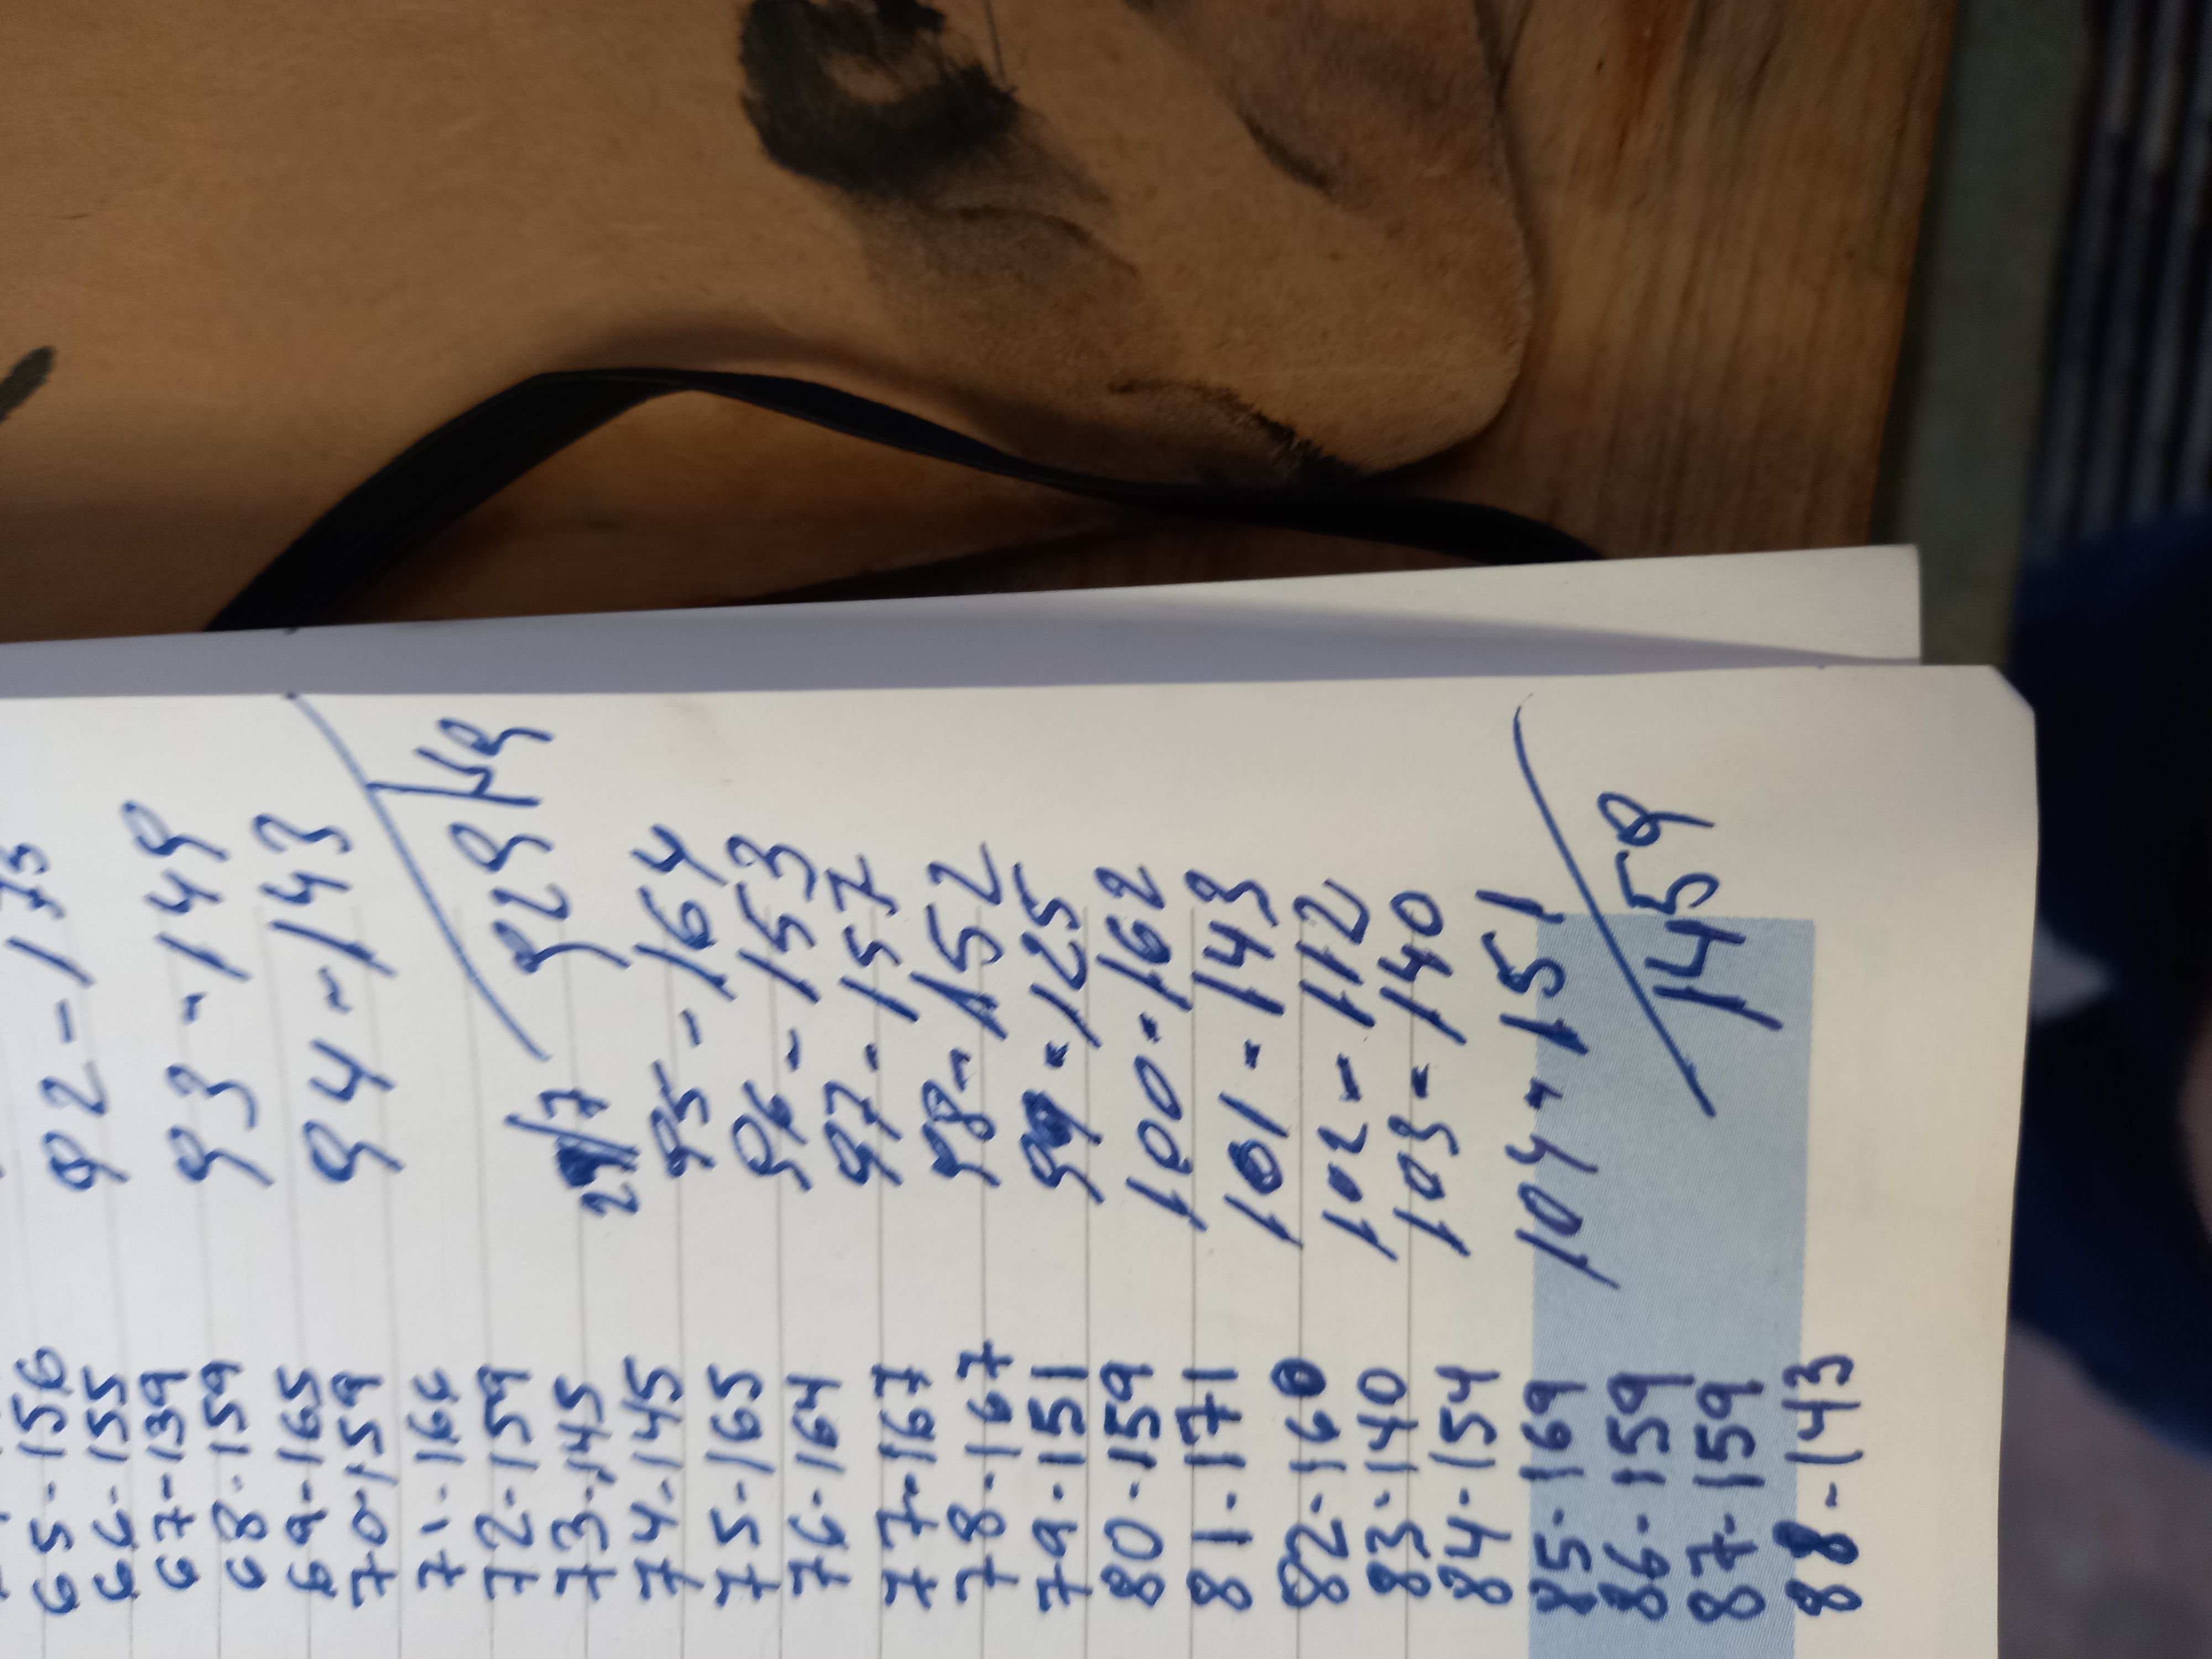 65-156
66-155
67-139
68-159
69-165
70-159
71-166
72-159
73-145
74-145
75-165
76-164
77-167
78-167
79-151
80-159
81-171
82-160
83-140
84-154
85-169
86-159
87-159
88-143
92-
93-149
94-143
929
95-164
96-153
97-157
98-152
99-125
100-162
101-143
102-112
103-140
104-151
1459